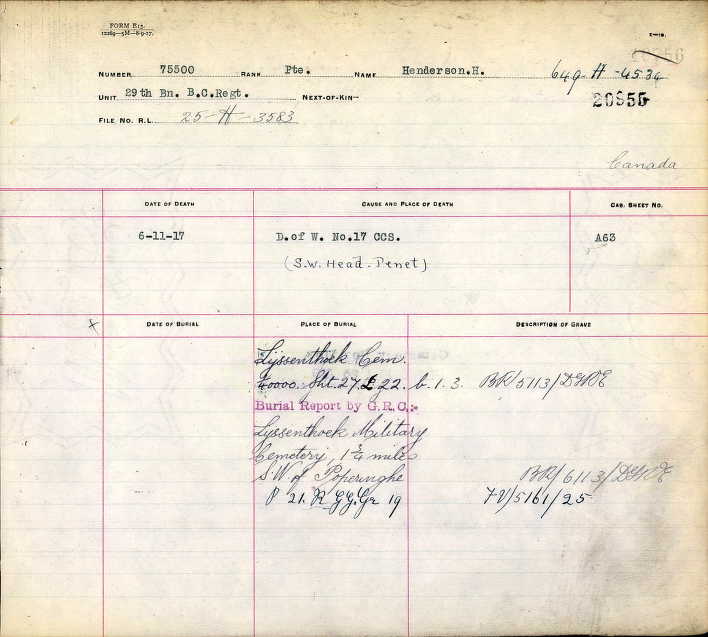 FORM E15.
12269—5M—8-9-17.
20556
NUMBER 75500 RANK Pte. NAME Henderson.H. 649-H-4534
UNIT 29th Bn. B.C.Regt. NEXT-OF-KIN—
20955
FILE NO. R.L. 25-H-3583
Canada
DATE OF DEATH CAUSE AND PLACE OF DEATH CAS. SHEET NO.
6-11-17 D.of W. No.17 CCS. A63
(S.W. Head - Penet)
x DATE OF BURIAL PLACE OF BURIAL DESCRIPTION OF GRAVE
Lyssenthoek Cem.
Sht. 27 L 22. b. 1. 3. BR/5113/DGRE
Burial Report by G.R.C:-
Lyssenthoek Military
Cemetery, 1 3/4 miles
S.W. of Poperinghe BR/6113/DGRE
P 21. R Gr 19 FV/5161/25